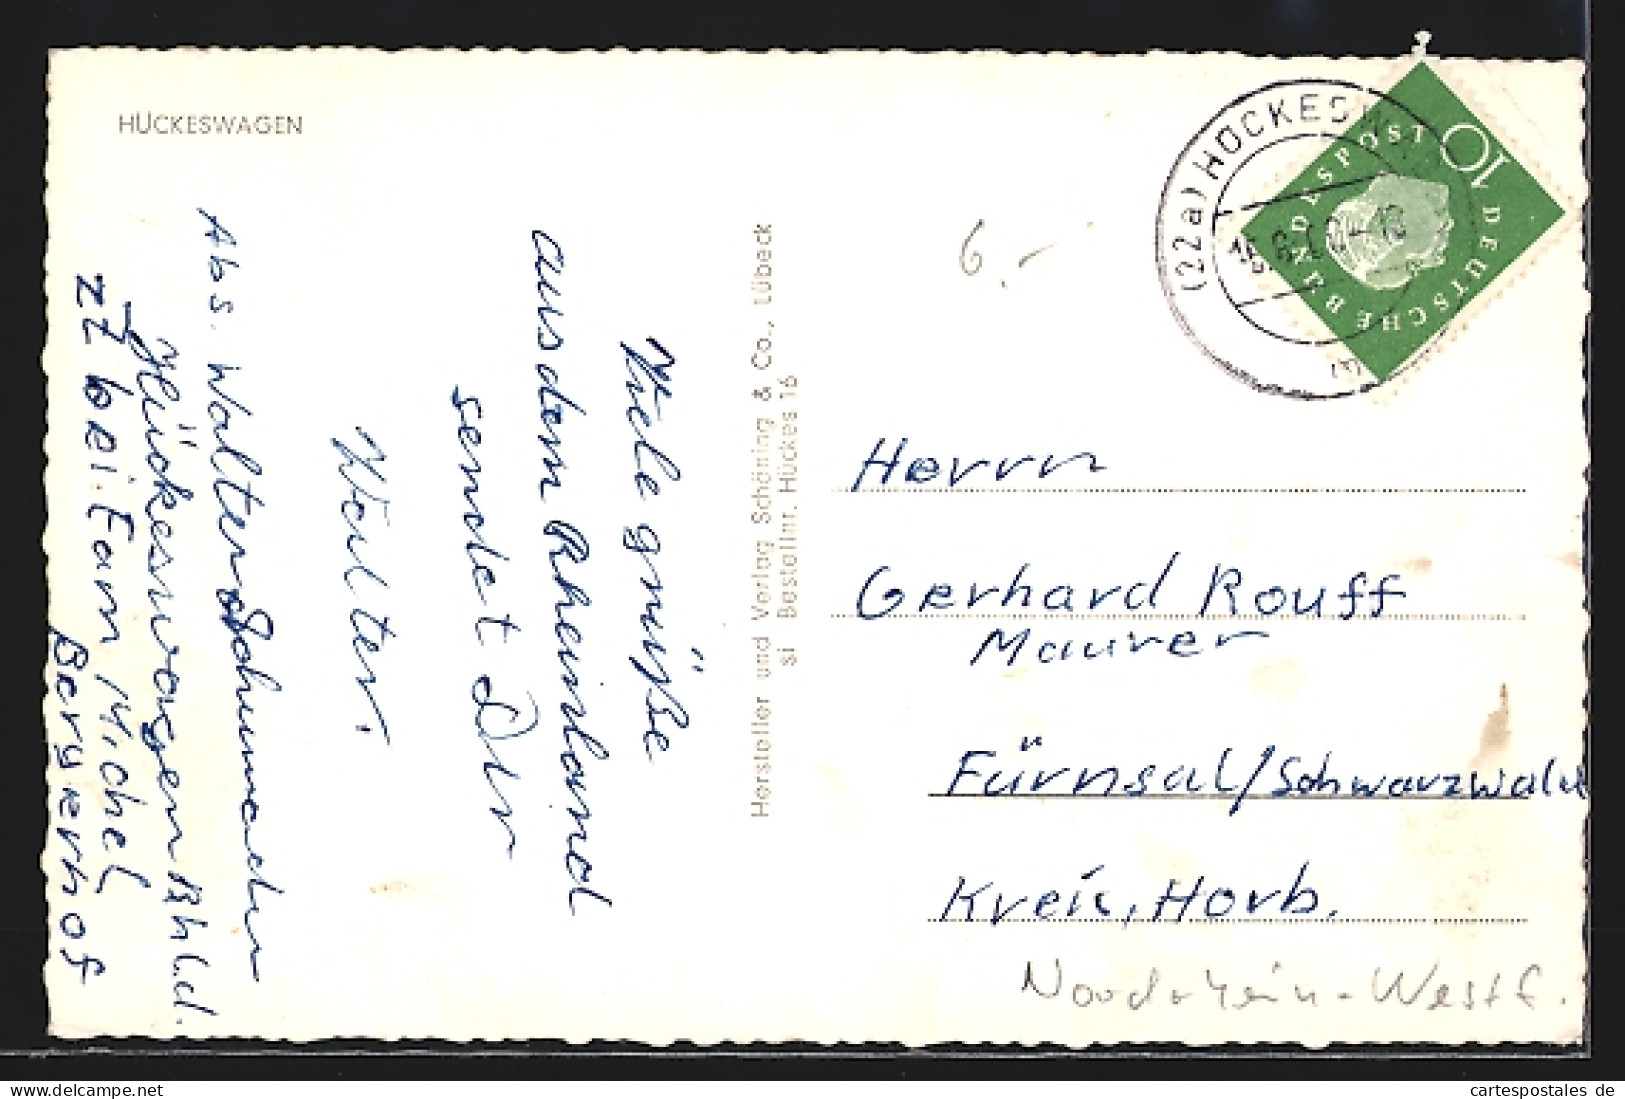 HÜCKESWAGEN
Abs. Walter Schumacher
Hückeswagen Rhld.
zZ bei Fam Michel
Beryerhof
Viele grüße
aus dem Rheinland
sendet Dir
Walter.
Hersteller und Verlag Schöning & Co., Lübeck
si Bestellnr. Hückes 16
6.-
(22a) HÜCKESW
DEUTSCHE BUNDESPOST
10
Herrn
Gerhard Rouff
Maurer
Fürnsal/Schwarzwald
Kreis, Horb.
Nordrhein-Westf.
cartespostales de